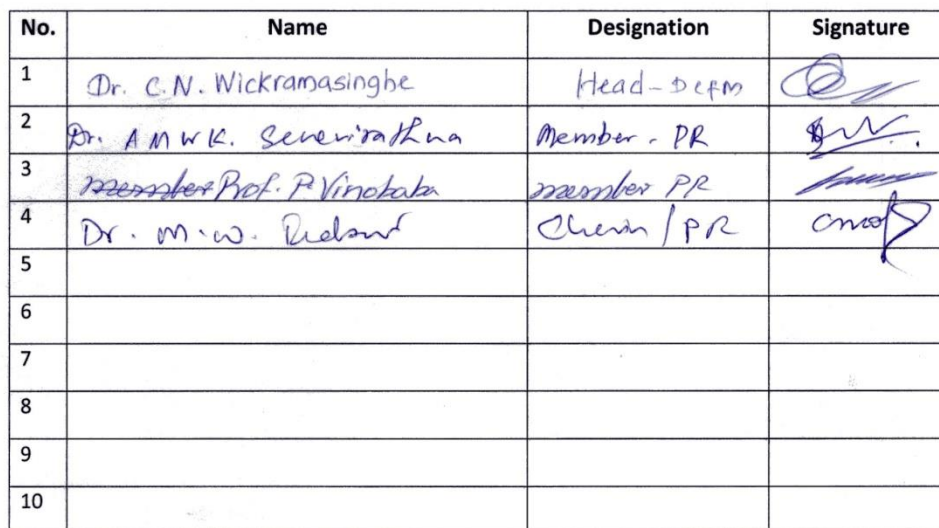 No. Name Designation Signature
1 Dr. C.N. Wickramasinghe Head - DCFM
2 Dr. AMWK. Senevirathna Member - PR
3 member Prof. P. Vinobaba member PR
4 Dr. M.W. / PR
5
6
7
8
9
10